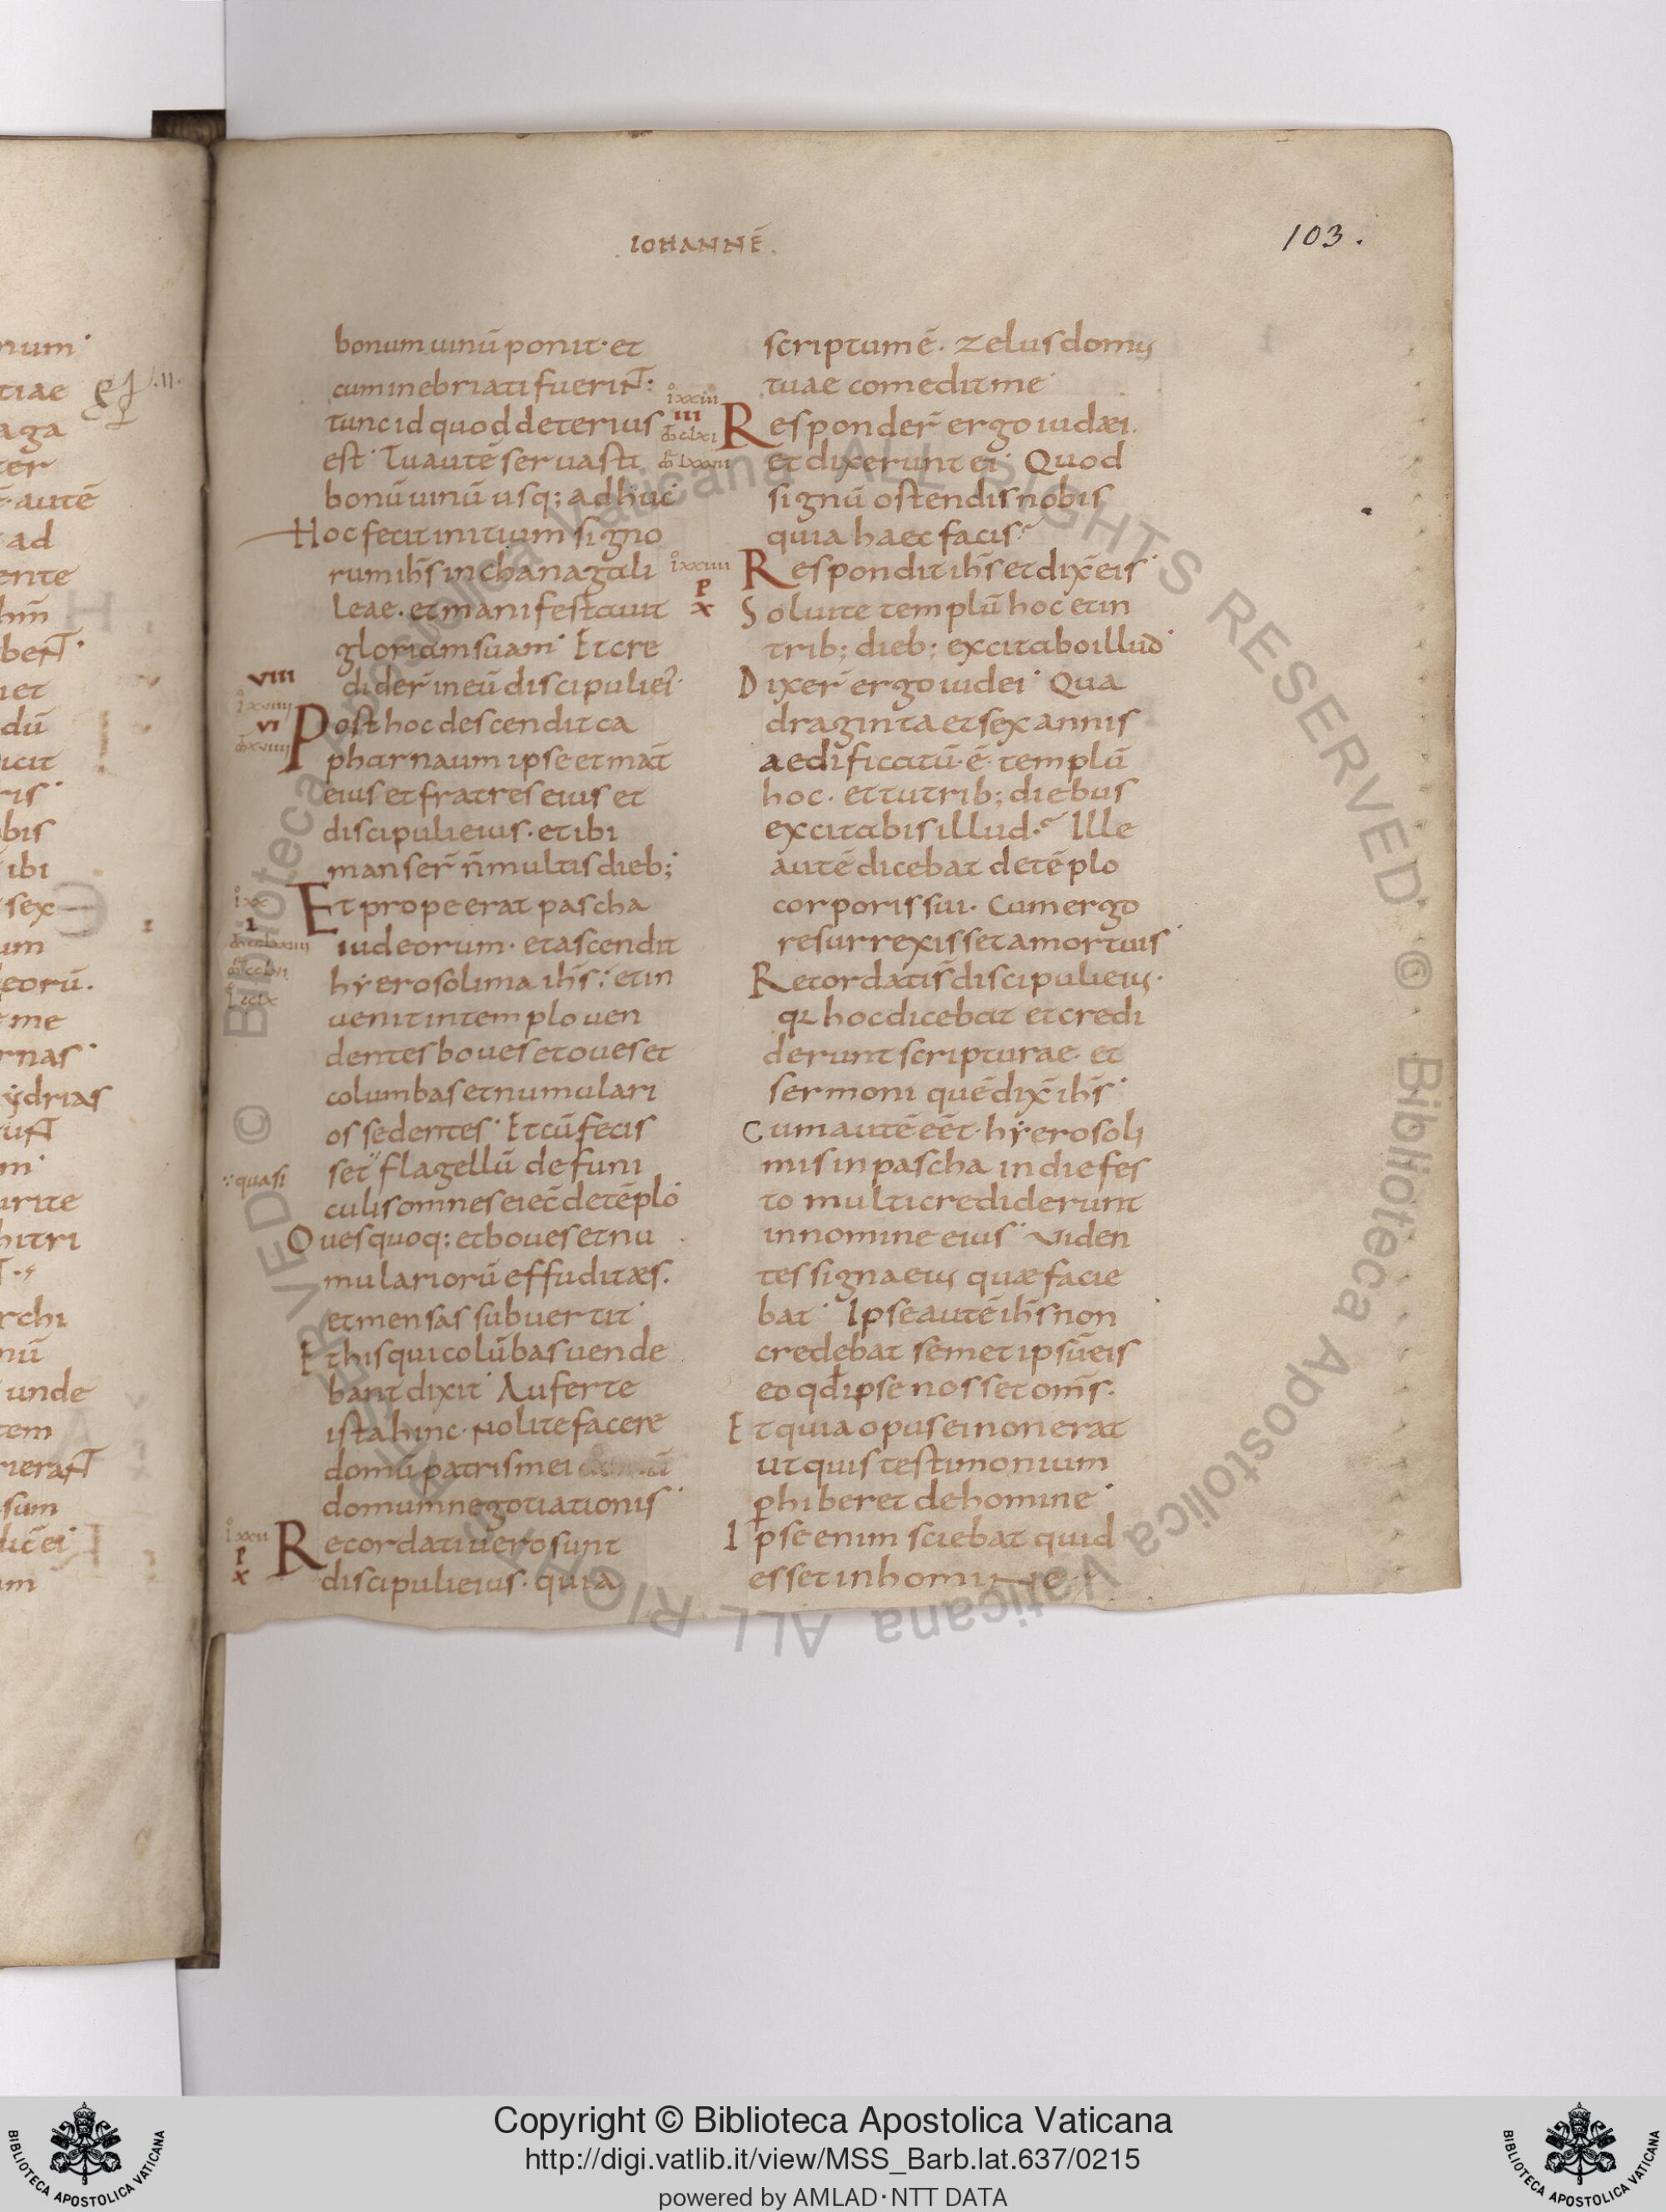 .IOHANNĒ.
103.
bonum uinū ponit· et
cum inebriati fuerinT:
tunc id quod deterius
est· Tu autē seruasti
bonū uinū usq; adhuc·
Hoc fecit initium signo
rum ihs̄ in chana gali
leae. et manifestauit
gloriam suam· Et cre
dider̄ in eū discipuli ei᾽·
VIII
VI
Post hoc descendit ca
pharnaum ipse et mat̄
eius et fratres eius et
discipuli eius· et ibi
manser̄ n̄ multis dieb;
I
Et prope erat pascha
iudeorum· et ascendit
hẏerosolima ihs̄; et in
uenit in templo uen
dentes boues et oues et
columbas et numulari
os sedentes· Et cū fecis
set flagellū de funi
quasi
culis omnes eiec̄ de tēplo·
Oues quoq; et boues et nu
mulariorū effudit æs.
et mensas subuertit·
Et his qui colūbas uende
bant dixit· Auferte
ista hinc· Nolite facere
domū patris mei
domum negotiationis·
lxxii
P
x
Recordati uero sunt
discipuli eius· quia
scriptum ē· Zelus domus
tuae comedit me·
lxxiii
III
Responder̄ ergo iudæi.
et dixerunt ei· Quod
signū ostendis nobis
quia haec facis?
lxxiiii
P
x
Respondit ihs̄ et dix̄ eis·
Soluite templū hoc et in
trib; dieb; excitabo illud·
Dixer̄ ergo iudei· Qua
draginta et sex annis
aedificatū·ē· templū
hoc· et tu trib; diebus
excitabis illud? Ille
autē dicebat de tēplo
corporis sui· Cum ergo
resurrexisset a mortuis·
Recordati s̄ discipuli eius·
qꝛ hoc dicebat et credi
derunt scripturae· et
sermoni quē dix̄ ihs̄·
Cum autē eēt· hẏerosoli
mis in pascha in die fes
to multi crediderunt
in nomine eius· Uiden
tes signa eius quæ facie
bat· Ipse autē ihs̄ non
credebat semet ipsū eis
eo qđ ipse nosset om̄s·
Et quia opus ei non erat
ut quis testimonium
ꝑhiberet de homine·
Ipse enim sciebat quid
esset in homine·
Copyright © Biblioteca Apostolica Vaticana
http://digi.vatlib.it/view/MSS_Barb.lat.637/0215
powered by AMLAD·NTT DATA
BIBLIOTECA APOSTOLICA VATICANA
BIBLIOTECA APOSTOLICA VATICANA